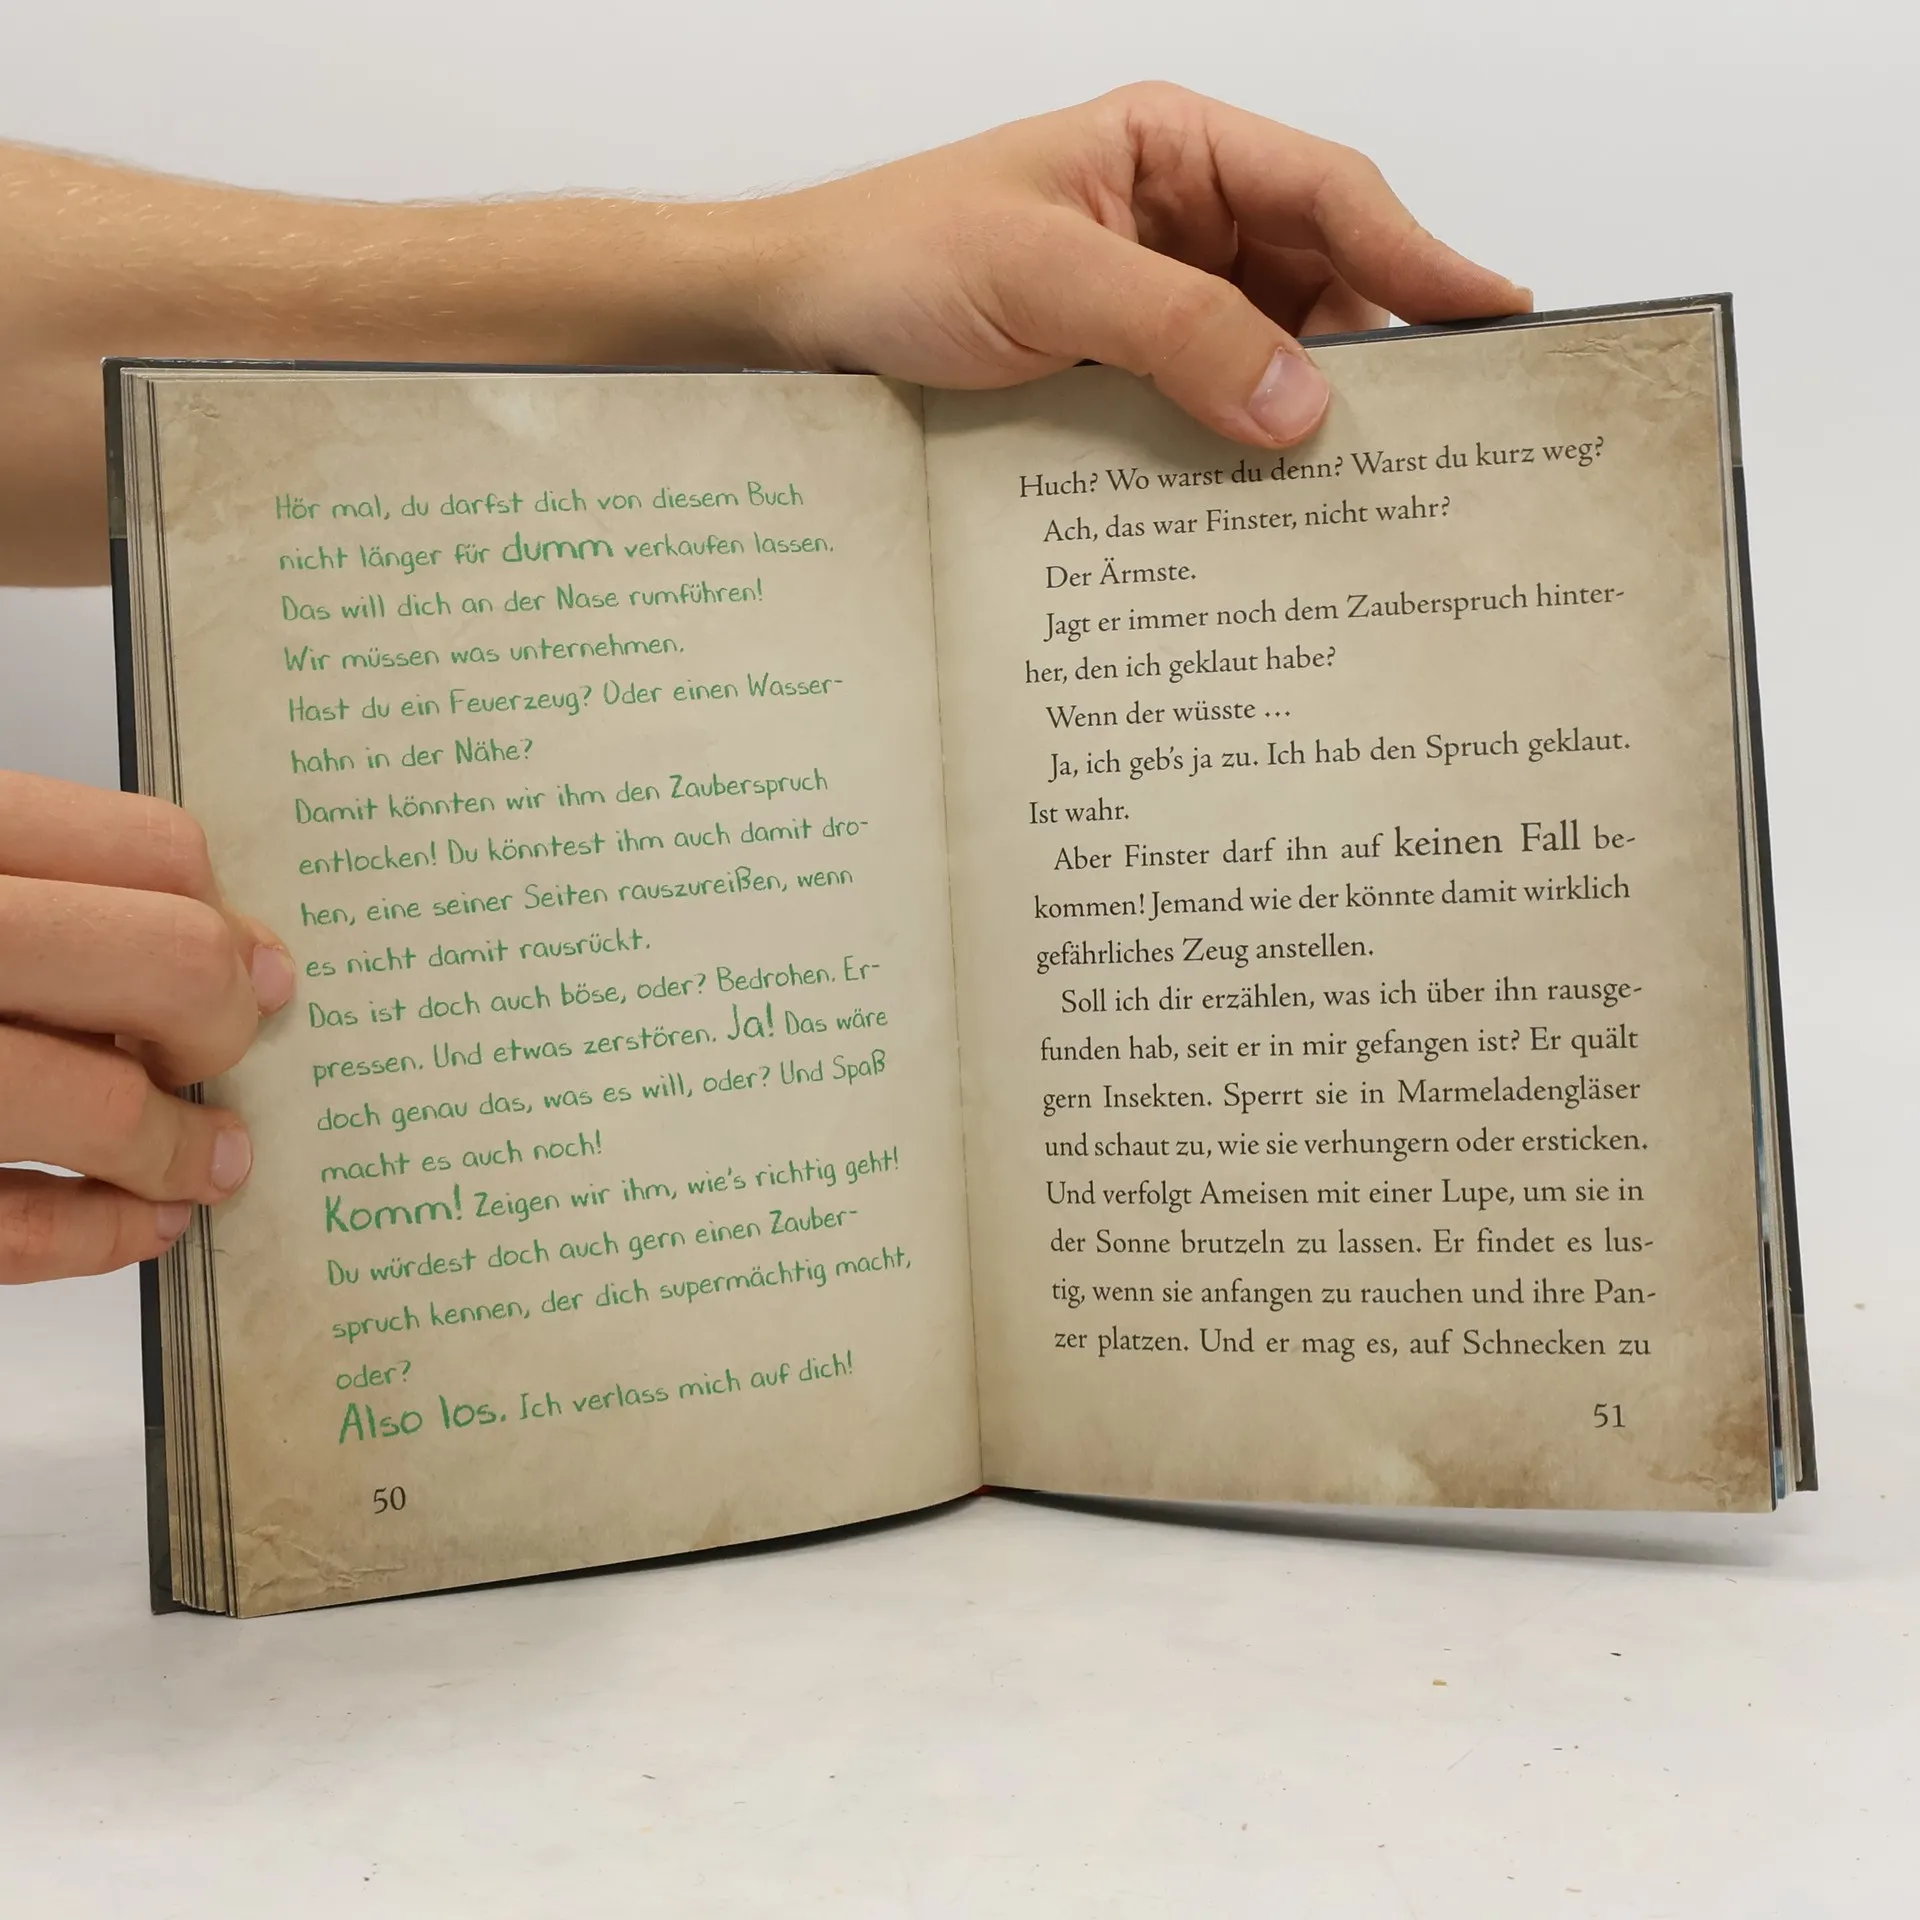 Hör mal, du darfst dich von diesem Buch
nicht länger für dumm verkaufen lassen.
Das will dich an der Nase rumführen!
Wir müssen was unternehmen.
Hast du ein Feuerzeug? Oder einen Wasser-
hahn in der Nähe?
Damit könnten wir ihm den Zauberspruch
entlocken! Du könntest ihm auch damit dro-
hen, eine seiner Seiten rauszureißen, wenn
es nicht damit rausrückt.
Das ist doch auch böse, oder? Bedrohen. Er-
pressen. Und etwas zerstören. Ja! Das wäre
doch genau das, was es will, oder? Und Spaß
macht es auch noch!
Komm! Zeigen wir ihm, wie's richtig geht!
Du würdest doch auch gern einen Zauber-
spruch kennen, der dich supermächtig macht,
oder?
Also los. Ich verlass mich auf dich!
50
Huch? Wo warst du denn? Warst du kurz weg?
Ach, das war Finster, nicht wahr?
Der Ärmste.
Jagt er immer noch dem Zauberspruch hinter-
her, den ich geklaut habe?
Wenn der wüsste …
Ja, ich geb's ja zu. Ich hab den Spruch geklaut.
Ist wahr.
Aber Finster darf ihn auf keinen Fall be-
kommen! Jemand wie der könnte damit wirklich
gefährliches Zeug anstellen.
Soll ich dir erzählen, was ich über ihn rausge-
funden hab, seit er in mir gefangen ist? Er quält
gern Insekten. Sperrt sie in Marmeladengläser
und schaut zu, wie sie verhungern oder ersticken.
Und verfolgt Ameisen mit einer Lupe, um sie in
der Sonne brutzeln zu lassen. Er findet es lus-
tig, wenn sie anfangen zu rauchen und ihre Pan-
zer platzen. Und er mag es, auf Schnecken zu
51